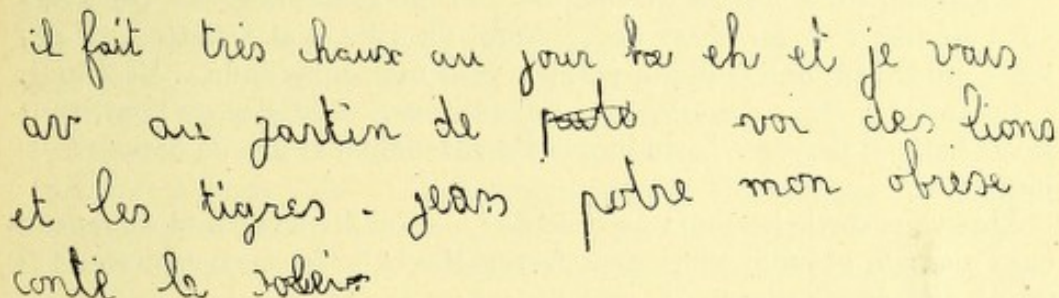 il fait très chaux au jour hoe eh et je vais
av au jartin de voi des lions
et les tigres - jeans potre mon obrese
conte le solei